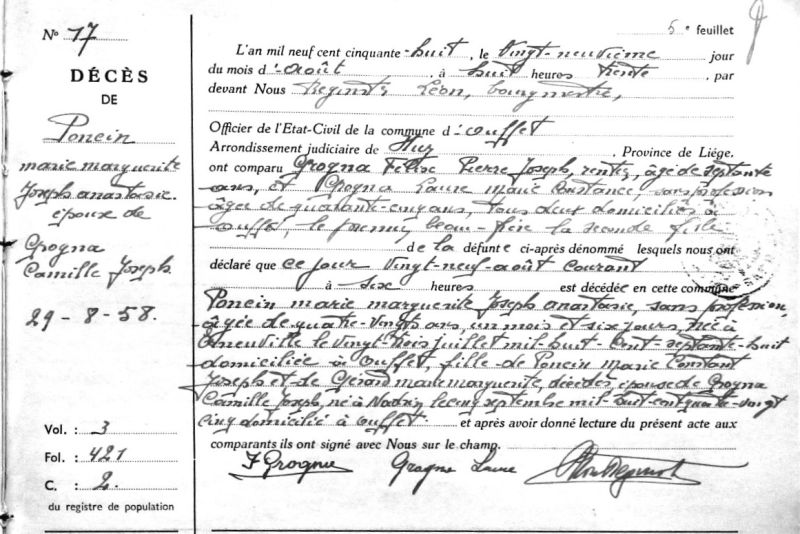 N° 17
DÉCÈS
DE
Poncin
marie marguerite
Joseph anastasie
épouse de
Grogna
Camille Joseph
29-8-58.
Vol. : 3
Fol. : 421
C. : 2
du registre de population
5e feuillet
L'an mil neuf cent cinquante-huit, le Vingt-neuvième jour
du mois d'août, à huit heures trente, par
devant Nous Léon, bourgmestre,
Officier de l'Etat-Civil de la commune d'Ouffet
Arrondissement judiciaire de Huy, Province de Liége.
ont comparu Grogna Félix Pierre Joseph, rentier, âgé de septante
ans, et Grogna Laure Marie Constance, sans profession
âgée de quarante-cinq ans, tous deux domiciliés à
Ouffet, le premier beau-frère la seconde fille
de la défunte ci-après dénommé lesquels nous ont
déclaré que ce jour Vingt-neuf-août courant
à six heures est décédée en cette commune
Poncin marie marguerite Joseph anastasie, sans profession,
âgée de quatre-vingts ans, un mois et six jours, née à
le vingt trois juillet mil-huit-cent septante-huit
domiciliée à Ouffet, fille de Poncin Marie Constant
Joseph et de Gérard marie marguerite, décédés, épouse de Grogna
Camille Joseph, né à le cinq septembre mil-huit-cent quatre-vingt
cinq domicilié à Ouffet. et après avoir donné lecture du présent acte aux
comparants ils ont signé avec Nous sur le champ.
F Grogna Grogna Laure